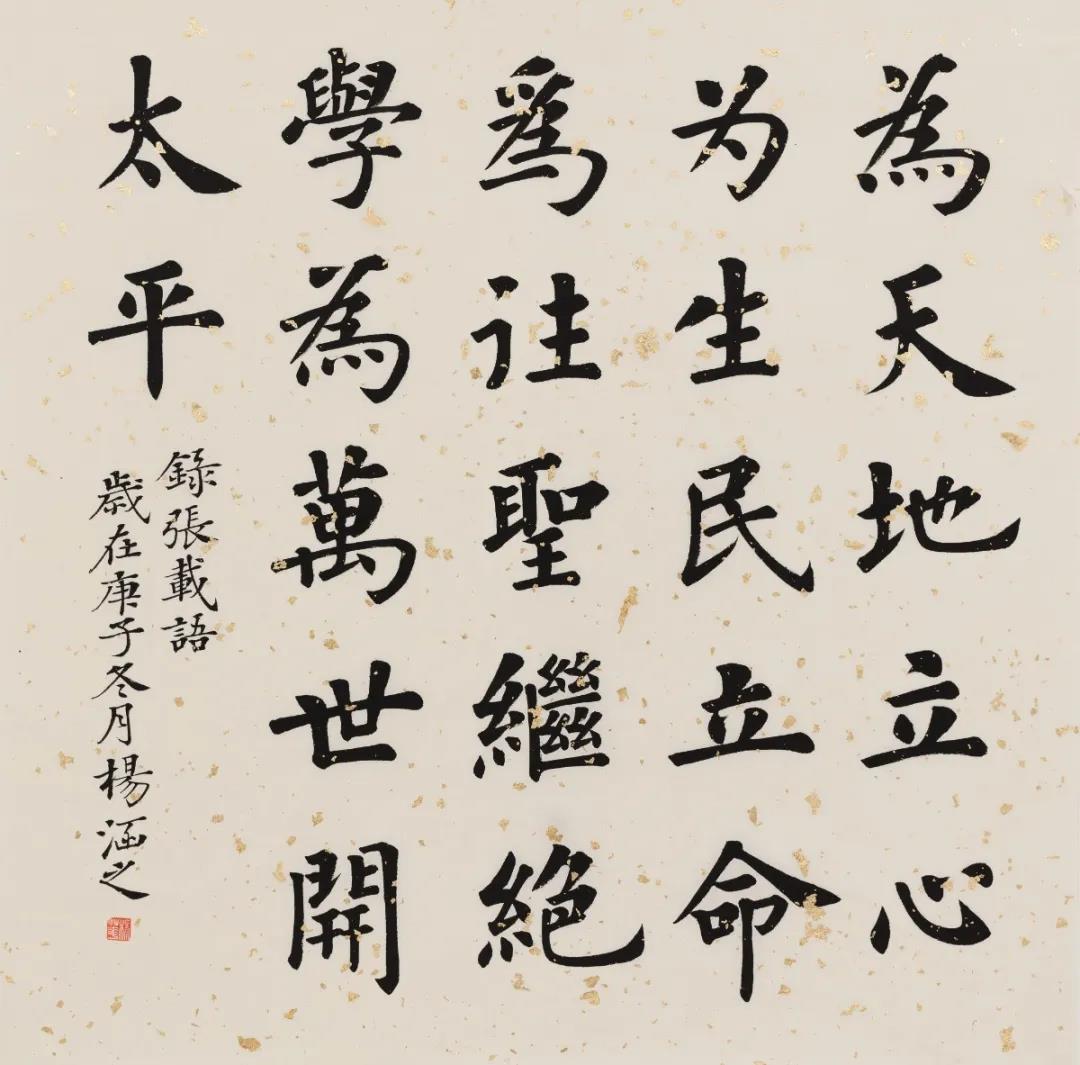 為天地立心
为生民立命
爲往聖繼絶
學為萬世開
太平
錄張載語
歲在庚子冬月楊涵之